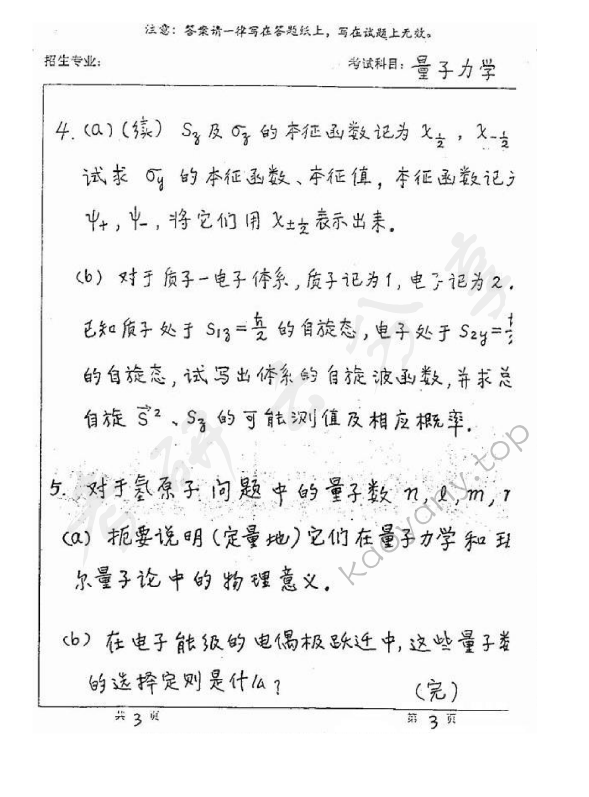 注意：答案请一律写在答题纸上，写在试题上无效。
招生专业： 考试科目：量子力学
4. (a) (续) S_z 及 σ_z 的本征函数记为 χ_{1/2}，χ_{-1/2}
试求 σ_y 的本征函数、本征值，本征函数记
ψ+，ψ-，将它们用 χ_{±1/2} 表示出来．
(b) 对于质子-电子体系，质子记为1，电子记为2．
已知质子处于 S_{1z}=ℏ/2 的自旋态，电子处于 S_{2y}=
的自旋态，试写出体系的自旋波函数，并求总
自旋 S⃗²、S_z 的可能测值及相应概率．
5. 对于氢原子问题中的量子数 n, l, m,
(a) 扼要说明(定量地)它们在量子力学和
尔量子论中的物理意义．
(b) 在电子能级的电偶极跃迁中，这些量子
的选择定则是什么？
(完)
共 3 页 第 3 页
考研云分享
kaoyany.top